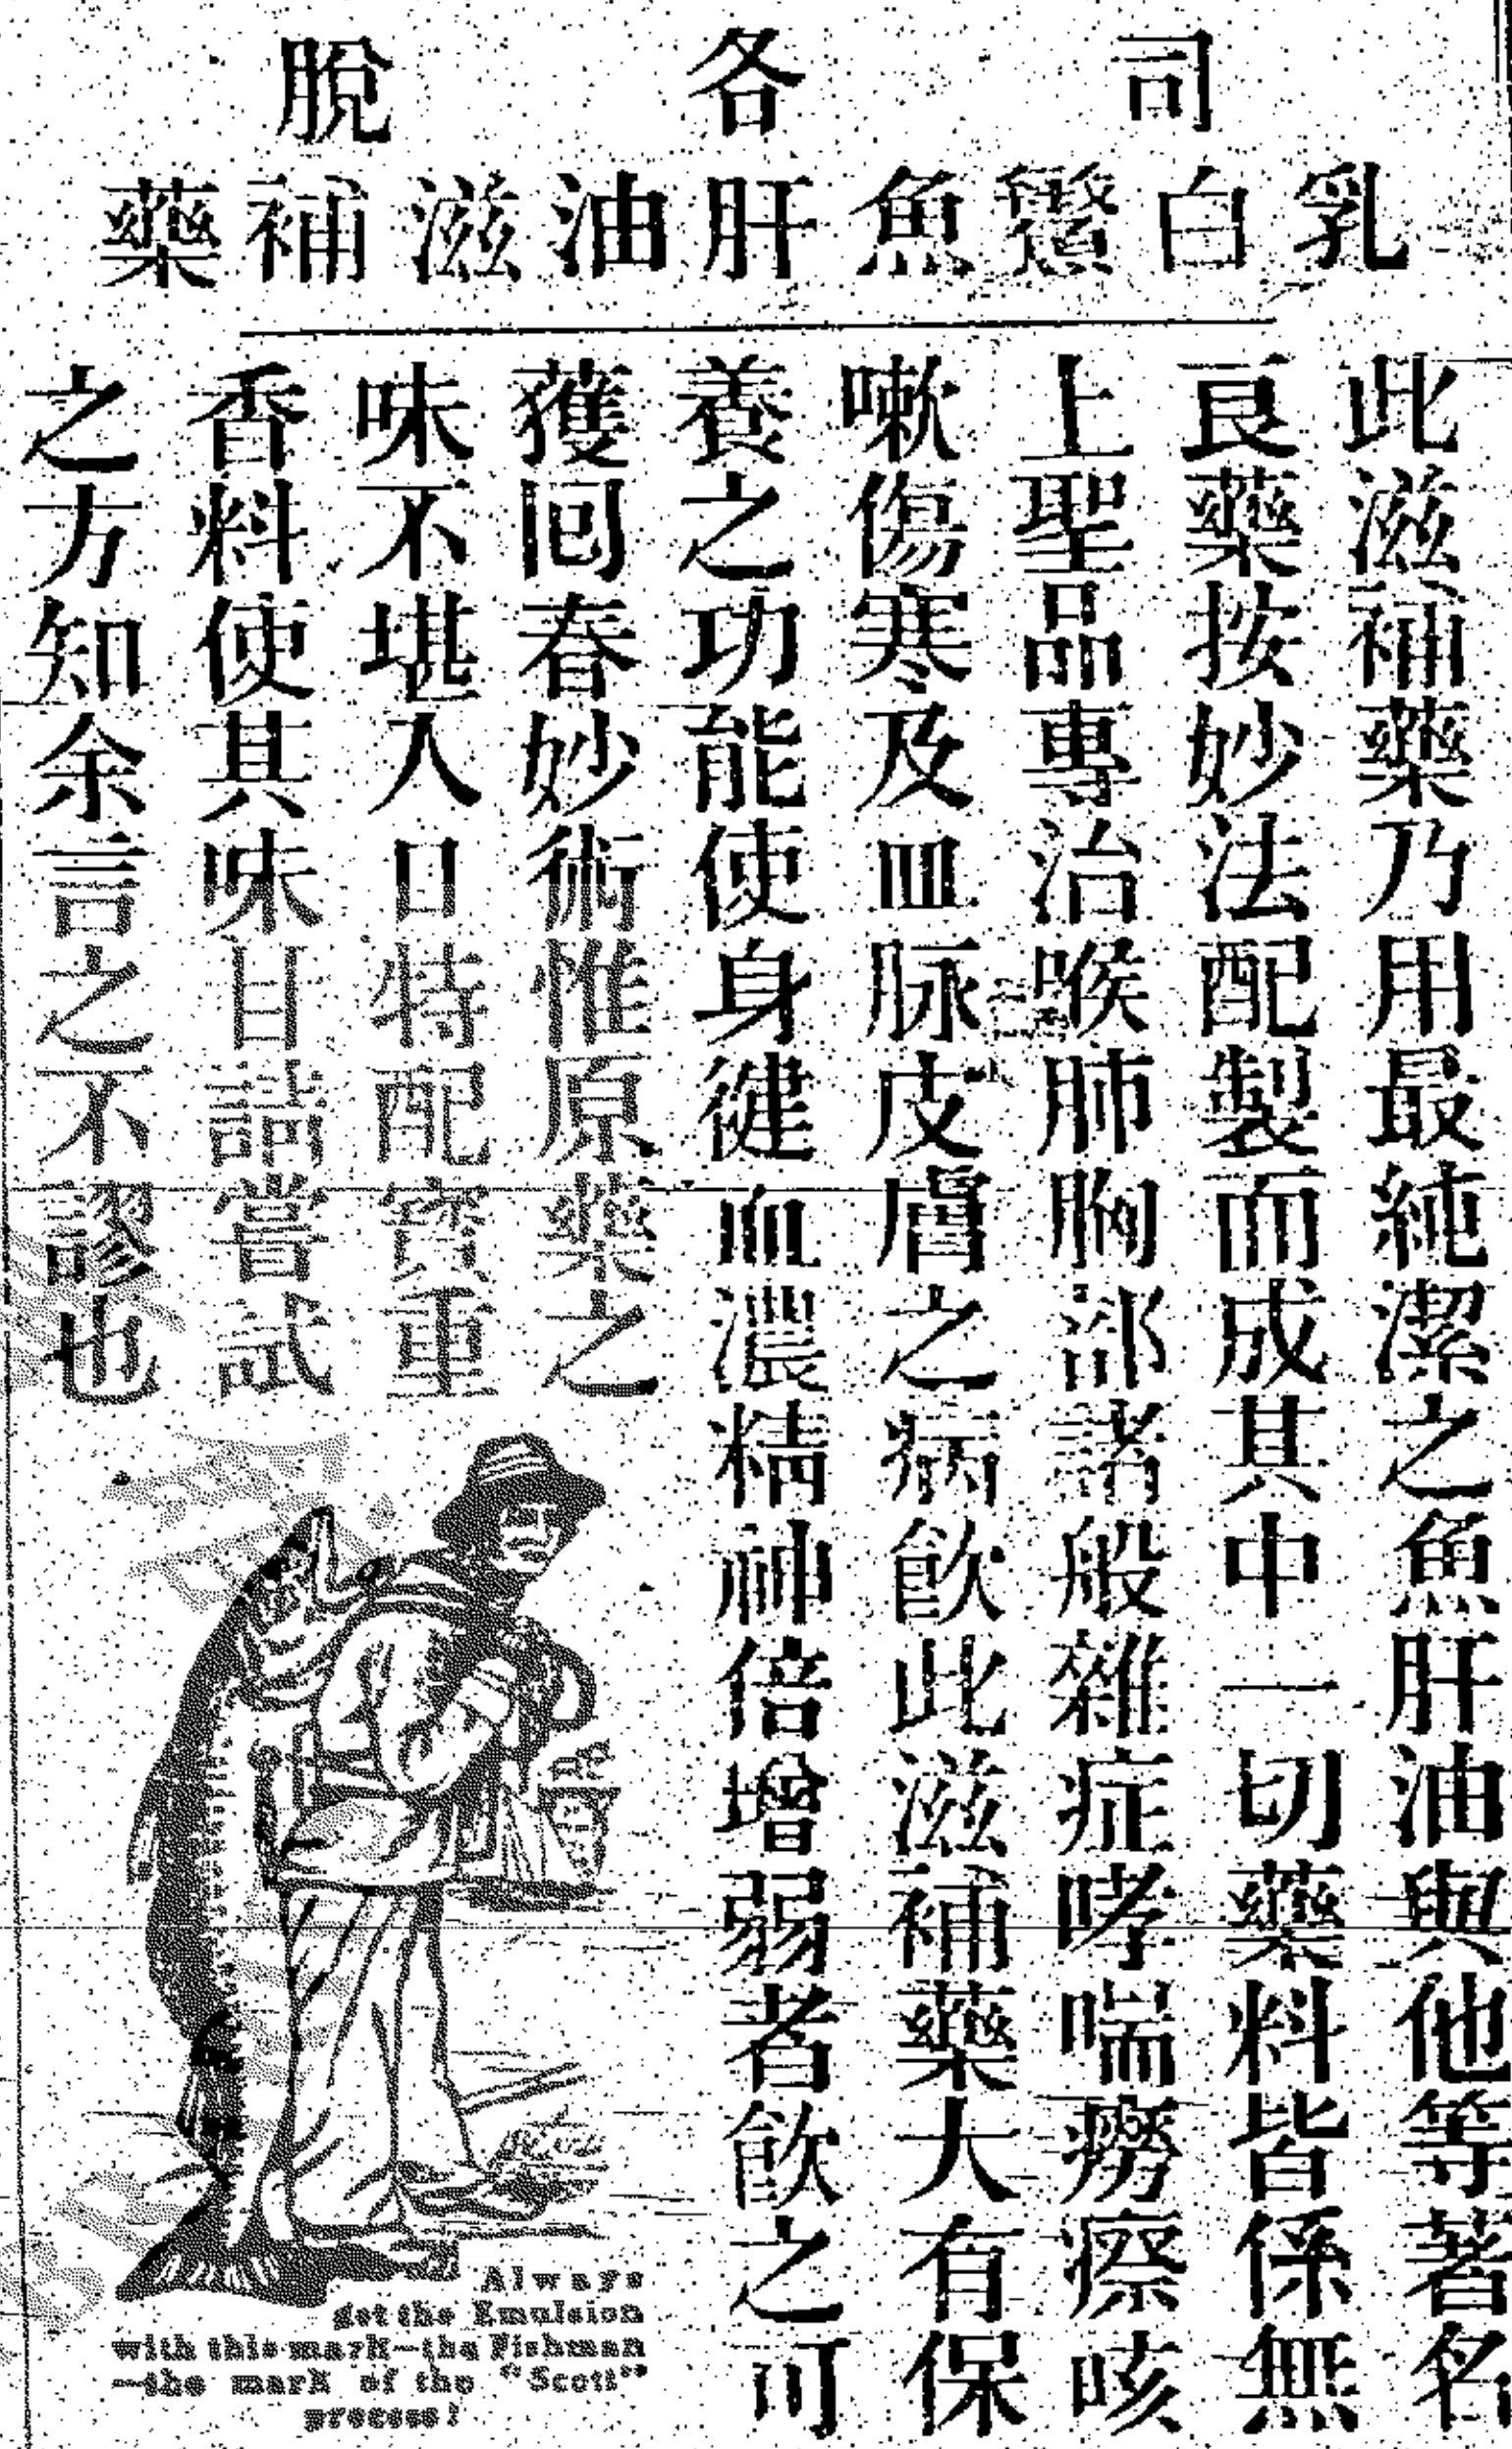 司各脫
乳白鰵魚肝油滋補藥
此滋補藥乃用最純潔之魚肝油與他等著名
良藥按妙法配製而成其中一切藥料皆係無
上聖品專治喉肺胸部諸般雜症哮喘癆瘵咳
嗽傷寒及血脉皮膚之病飲此滋補藥大有保
養之功能使身健血濃精神倍增弱者飲之可
獲回春妙術惟原藥之
味不堪入口特配寶重
香料使其味甘請嘗試
之方知余言之不謬也
Always
get the Emulsion
with this mark—the Fishman
—the mark of the "Scott"
process!